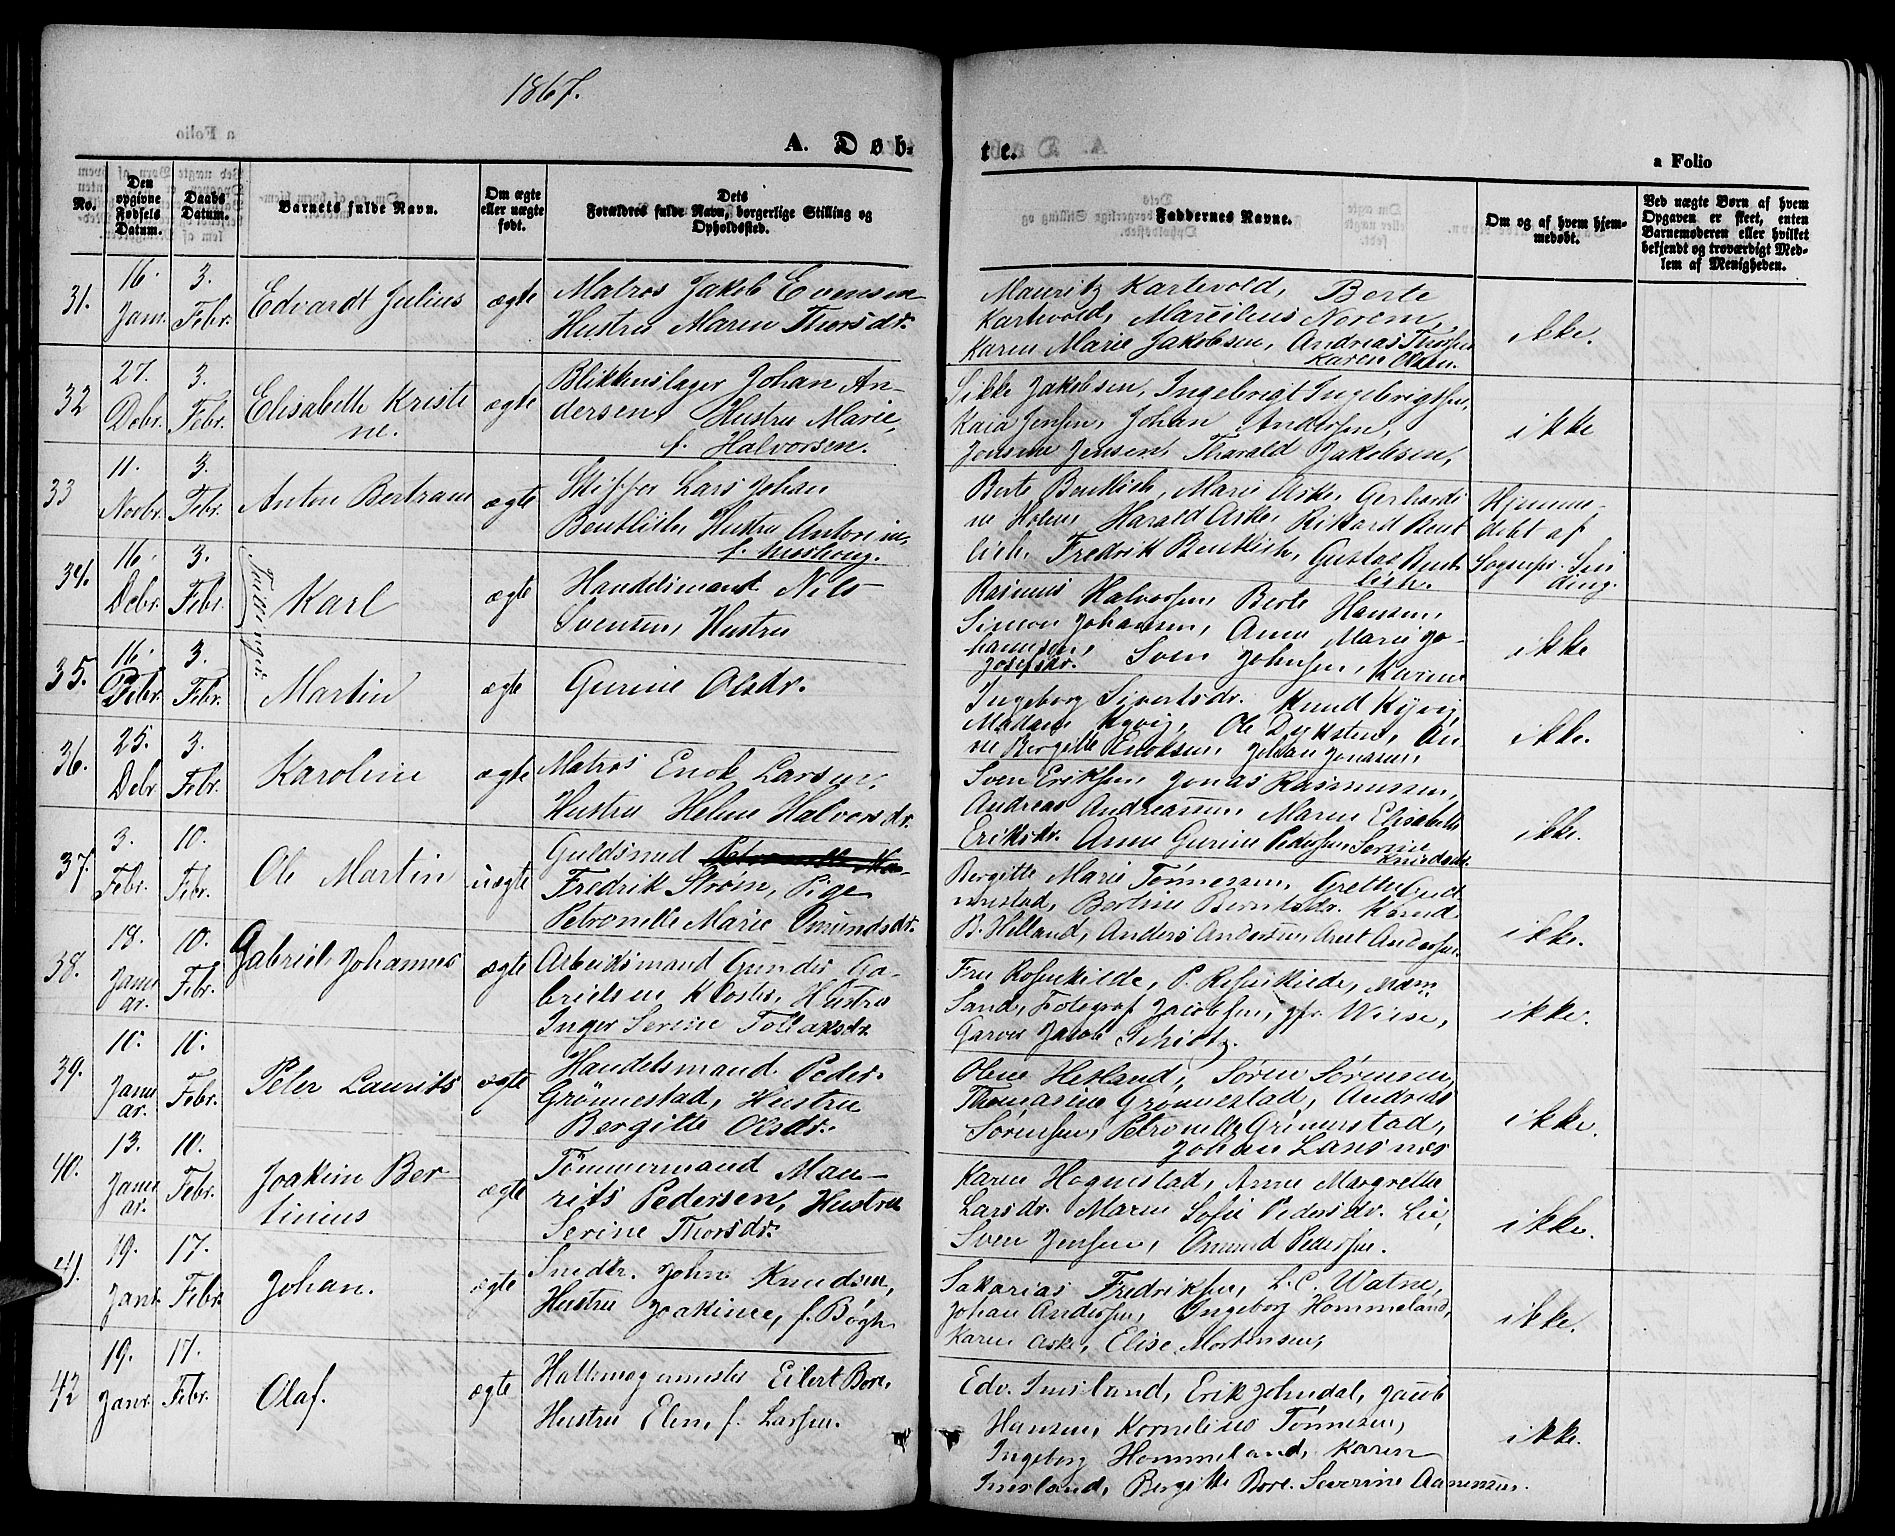 1867.
A. Døb-
te.
a Folio
No.
Den opgivne Fødsels Datum.
Daabs Datum.
Barnets fulde Navn.
Om ægte eller uægte født.
Dets Forældres fulde Navn, borgerlige Stilling og Opholdssted.
Faddernes Navne.
Om og af hvem hjemmedøbt.
Ved uægte Børn af hvem Opgaven er skeet, enten Barnemoderen eller hvilket bekjendt og troværdigt Medlem af Menigheden.
31. 16. Janr. 3. Febr. Edvardt Julius ægte
Matros Jakob Evensen
Hustru Maren Thorsdr.
Mauritz Kartevold, Berte
Kartevold, Marcilius Norem,
Karen Marie Jakobsen, Andreas Thorsen
Karen Olsen.
ikke.
32 27. Debr. 3. Febr. Elisabeth Kristi
ne. ægte
Blikkenslager Johan An-
dersen, Hustru Marie,
f. Halvorsen.
Sikke Jakobsen, Ingebrigt Ingebrigtsen,
Kaia Jensen, Johan Andersen,
Jensine Jensen, Tharald Jakobsen,
ikke
33 11. Novbr. 3. Febr. Anton Bertram ægte
Skipper Lars Johan
Bentlich, Hustru Antonine
Berte Bentlich, Marie Aske, Gerhardi
ne Holm, Harald Aske, Rikard Bent
lich, Fredrik Bentlich, Gustav Bent
lich.
Hjemme-
døbt af
Sognepr. Sin
ding.
34. 16. Debr. 3. Febr. Tvillinger: Karl ægte
Handelsmand Nils
Svensen, Hustru
Rasmus Halvorsen, Berte Hansen,
Simon Johansen, Anne Marie Jo-
hannesen, Sven Johnsen, Karen
Josefsdr.
ikke
35. 16. Debr. 3. Febr. Martin ægte
Gurine Olsdr.
Ingeborg Sivertsdr. Knud Kyvig,
Madam Kyvig, Ole Dyksten, An
ne Bergitte Eriksen, Johan Jonassen,
ikke.
36. 25. Debr 3. Febr. Karoline ægte
Matros Enok Larsen,
Hustru Helene Halvorsdr.
Sven Eriksen, Jonas Rasmussen,
Andreas Andreassen, Maren Elisabeth
Eriksdr. Anne Gurine Pedersen, Serine
Knudsdr.
ikke.
37. 3. Febr. 10. Febr. Ole Martin uægte
Guldsmed
Fredrik Strøm, Pige
Petronelle Marie Omundsdr.
Bergitte Marie Tønnessen, Grethe Gud
mestad, Bertine Berntsdr. Knud
B. Helland, Anders Andersen, Anet Andersen.
ikke.
38. 18. Janu
ar. 10. Febr. Gabriel Johannes ægte
Arbeidsmand Gunder Ga-
brielsen Kloster, Hustru
Inger Serine Tollaksdr.
Fru Rosenkilde, P. Rosenkilde, Mam.
Sand, Fotograf Jacobsen, Jfr. Wiese,
Garver Jacob Schiøtz.
ikke.
39. 10. Janu
ar. 10. Febr. Peter Laurits ægte
Handelsmand Peder
Grønnestad, Hustru
Bergitte Olsdr.
Olene Hesland, Søren Sørensen,
Thomasine Grønnestad, Andreas
Sørensen, Petronelle Grønnestad,
Johan Lansnes
ikke.
40. 13. Janu
ar. 10. Febr. Joakim Ber-
tinius ægte
Tømmermand Mau-
rits Pedersen, Hustru
Serine Thorsdr.
Karen Hognestad, Anne Margrethe
Larsdr. Maren Sofie Pedersdr. Lie,
Sven Jensen, Omund Pedersen.
ikke.
41. 19. Janr. 17. Febr. Johan. ægte
Snedkr. John Knudsen,
Hustru Joakine, f. Bøgh.
Sakarias Fredriksen, L. C. Watne,
Johan Andersen, Ingeborg Hommeland,
Karen Aske, Elise Mortensen,
ikke.
42 19. Janr. 17. Febr. Olaf. ægte
Hattemagermester Eilert Bore,
Hustru Elen, f. Larsen.
Edv. Imsland, Erik Johndal, Jacob
Hansen, Kornelius Tønnesen,
Ingeborg Hommeland, Karen
Imsland, Bergitte Bore. Severine Aanensen.
ikke.